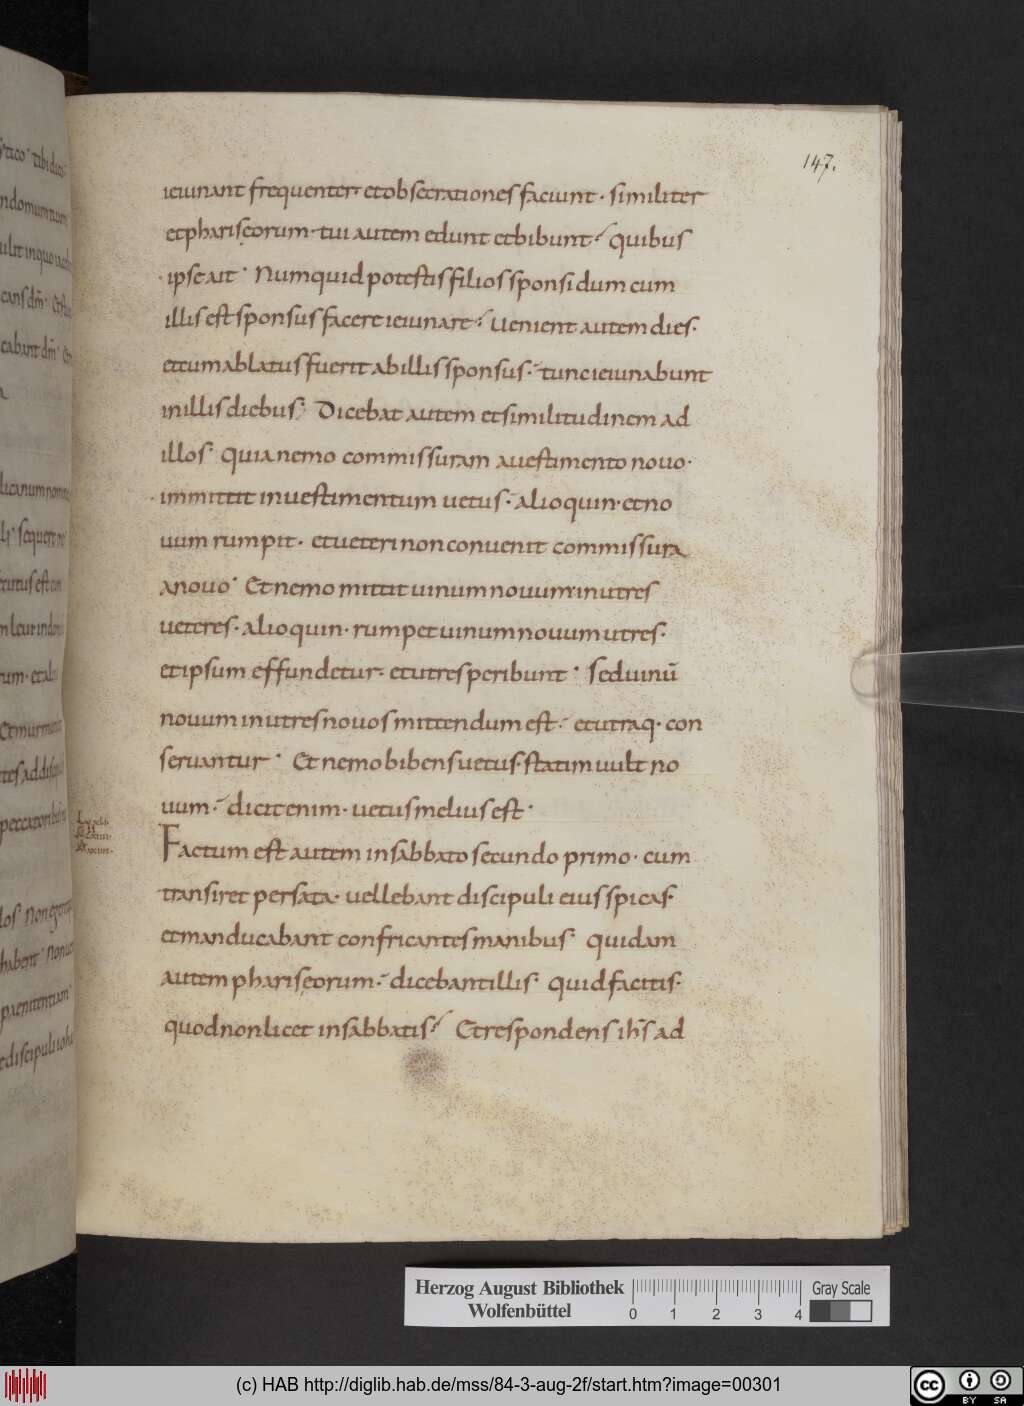 147.
ieiunant frequenter et obsecrationes faciunt · similiter
et phariseorum · tui autem edunt et bibunt · Quibus
ipse ait · Numquid potestis filios sponsi dum cum
illis est sponsus facere ieiunare · Uenient autem dies ·
et cum ablatus fuerit ab illis sponsus · tunc ieiunabunt
in illis diebus · Dicebat autem et similitudinem ad
illos · Quia nemo commissuram a uestimento nouo ·
immittit in uestimentum uetus · alioquin · et no
uum rumpit · et ueteri non conuenit commissura
a nouo · Et nemo mittit uinum nouum in utres
ueteres · alioquin · rumpet uinum nouum utres ·
et ipsum effundetur · et utres peribunt · Sed uinū
nouum in utres nouos mittendum est · et utraq · con
seruantur · Et nemo bibens uetus · statim uult no
uum · dicit enim · uetus melius est ·
Factum est autem in sabbato secundo primo · cum
transiret per sata · uellebant discipuli eius spicas ·
et manducabant confricantes manibus · Quidam
autem phariseorum · dicebant illis · Quid facitis ·
quod non licet in sabbatis · Et respondens ihs̄ ad
Herzog August Bibliothek
Wolfenbüttel
0 1 2 3 4
Gray Scale
(c) HAB http://diglib.hab.de/mss/84-3-aug-2f/start.htm?image=00301
cc BY SA